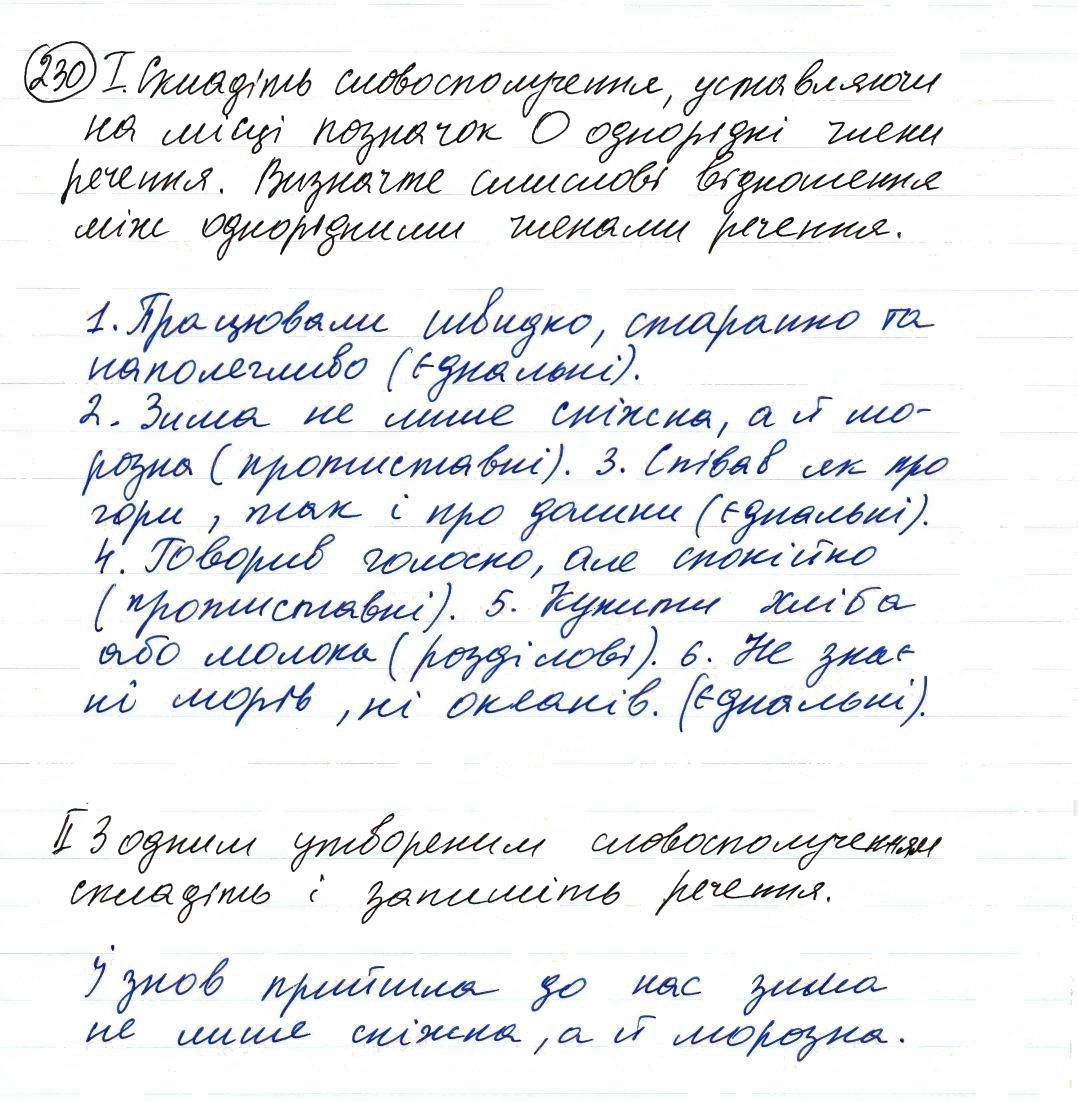 230 I. Складіть словосполучення, уставляючи
на місці позначок О однорідні члени
речення. Визначте смислові відношення
між однорідними членами речення.
1. Працювали швидко, старанно та
наполегливо (єднальні).
2. Зима не лише сніжна, а й мо-
розна (протиставні). 3. Співав як про
гори, так і про долини (єднальні).
4. Говорив голосно, але спокійно
(протиставні). 5. Купити хліба
або молока (розділові). 6. Не знає
ні морів, ні океанів. (єднальні).
II З одним утвореним словосполученням
складіть і запишіть речення.
І знов прийшла до нас зима
не лише сніжна, а й морозна.